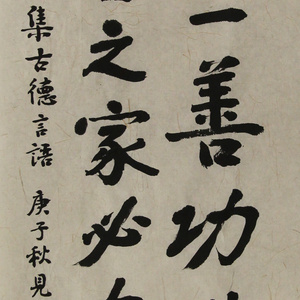 一善功
之家必
集古德言語 庚子秋見